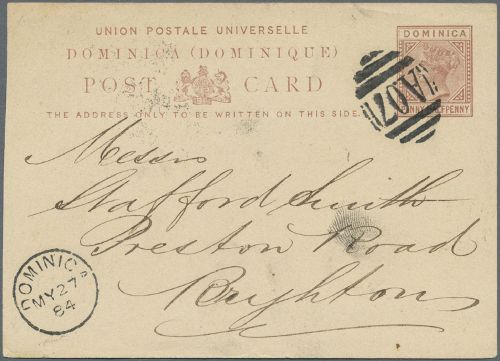 UNION POSTALE UNIVERSELLE
DOMINICA (DOMINIQUE)
POST CARD
THE ADDRESS ONLY TO BE WRITTEN ON THIS SIDE.
DOMINICA
PENNY HALFPENNY
A07
Messrs
Stafford Smith
Preston Road
Brighton
DOMINICA
MY 27
84